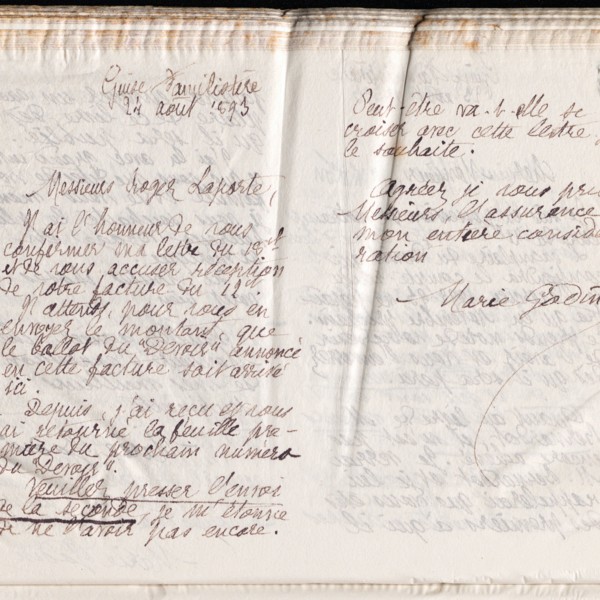 Guise Familistère
24 août 1893
Messieurs Roger Laporte,
J'ai l'honneur de vous
confermer ma lettre du 18 ct
et de vous accuser réception
de votre facture du 12 ct
J'attends, pour vous en
envoyer le montant que
le ballot du "Devoir" annoncé
en cette facture soit arrivé
ici.
Depuis, j'ai reçu et vous
ai retourné la feuille pre-
mière du prochain numéro
du Devoir".
Veuillez presser l'envoi
de la seconde, je m'étonne
de ne l'avoir pas encore.
Peut-être va-t-elle se
croiser avec cette lettre,
le souhaite.
Agréez je vous prie
Messieurs, l'assurance
mon entière considé
ration
Marie Godin